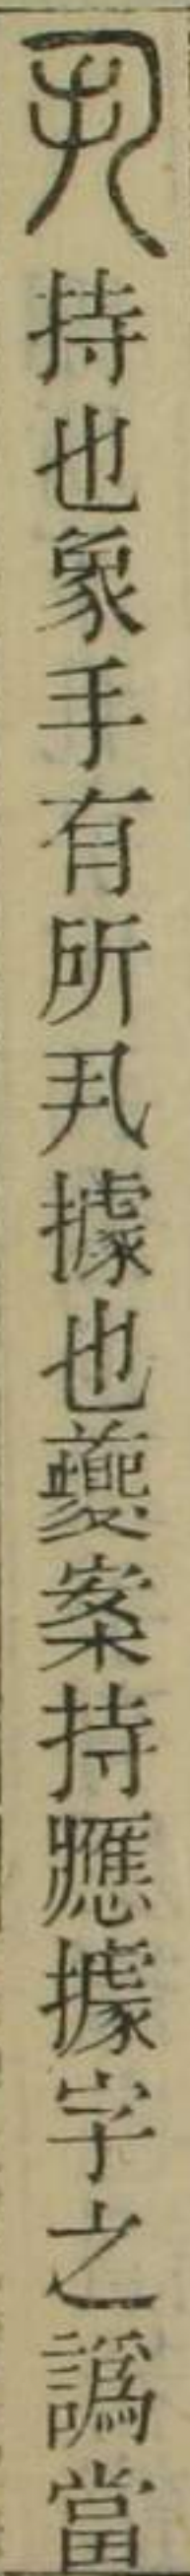 丮持也象手有所丮據也夔案持應據字之譌當